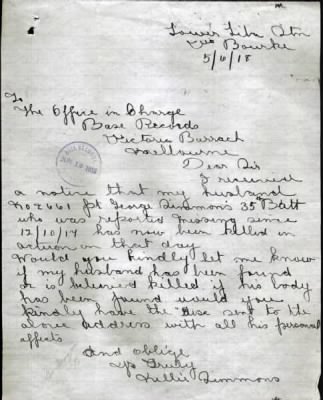 Lower Lila Stn
Via Bourke
5/6/18
To
The Office in Charge
Base Records
Victoria Barrack
Melbourne
Dear Sir
I received
a notice that my husband
No 2661 Pt George Simmons 35 Batt
who was reported missing since
12/10/17 has now been killed in
action on that day
Would you kindly let me know
if my husband has been found
or is believed killed if his body
has been found would you
kindly have the Disc sent to the
above address with all his personal
effects
And oblige
Yrs Truly
Nellie Simmons